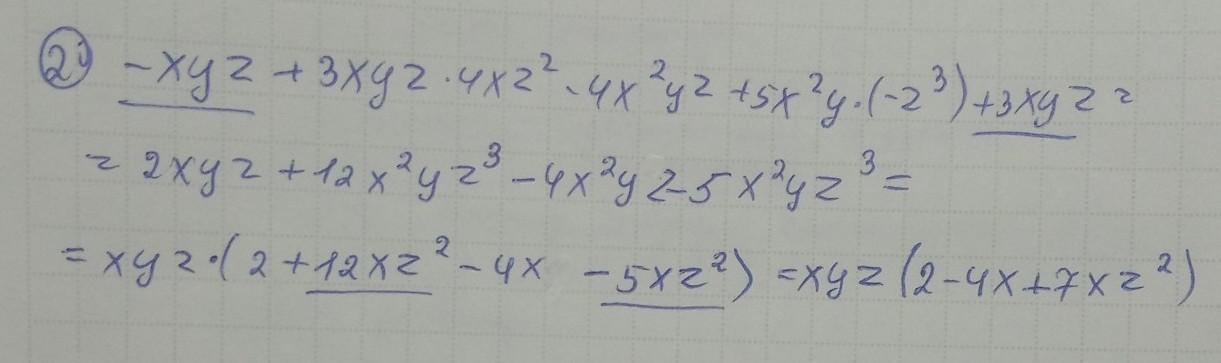 2) -xyz + 3xyz · 4xz² - 4x²yz + 5x²y · (-z³) + 3xyz =
= 2xyz + 12x²yz³ - 4x²yz - 5x²yz³ =
= xyz · (2 + 12xz² - 4x - 5xz²) = xyz (2 - 4x + 7xz²)